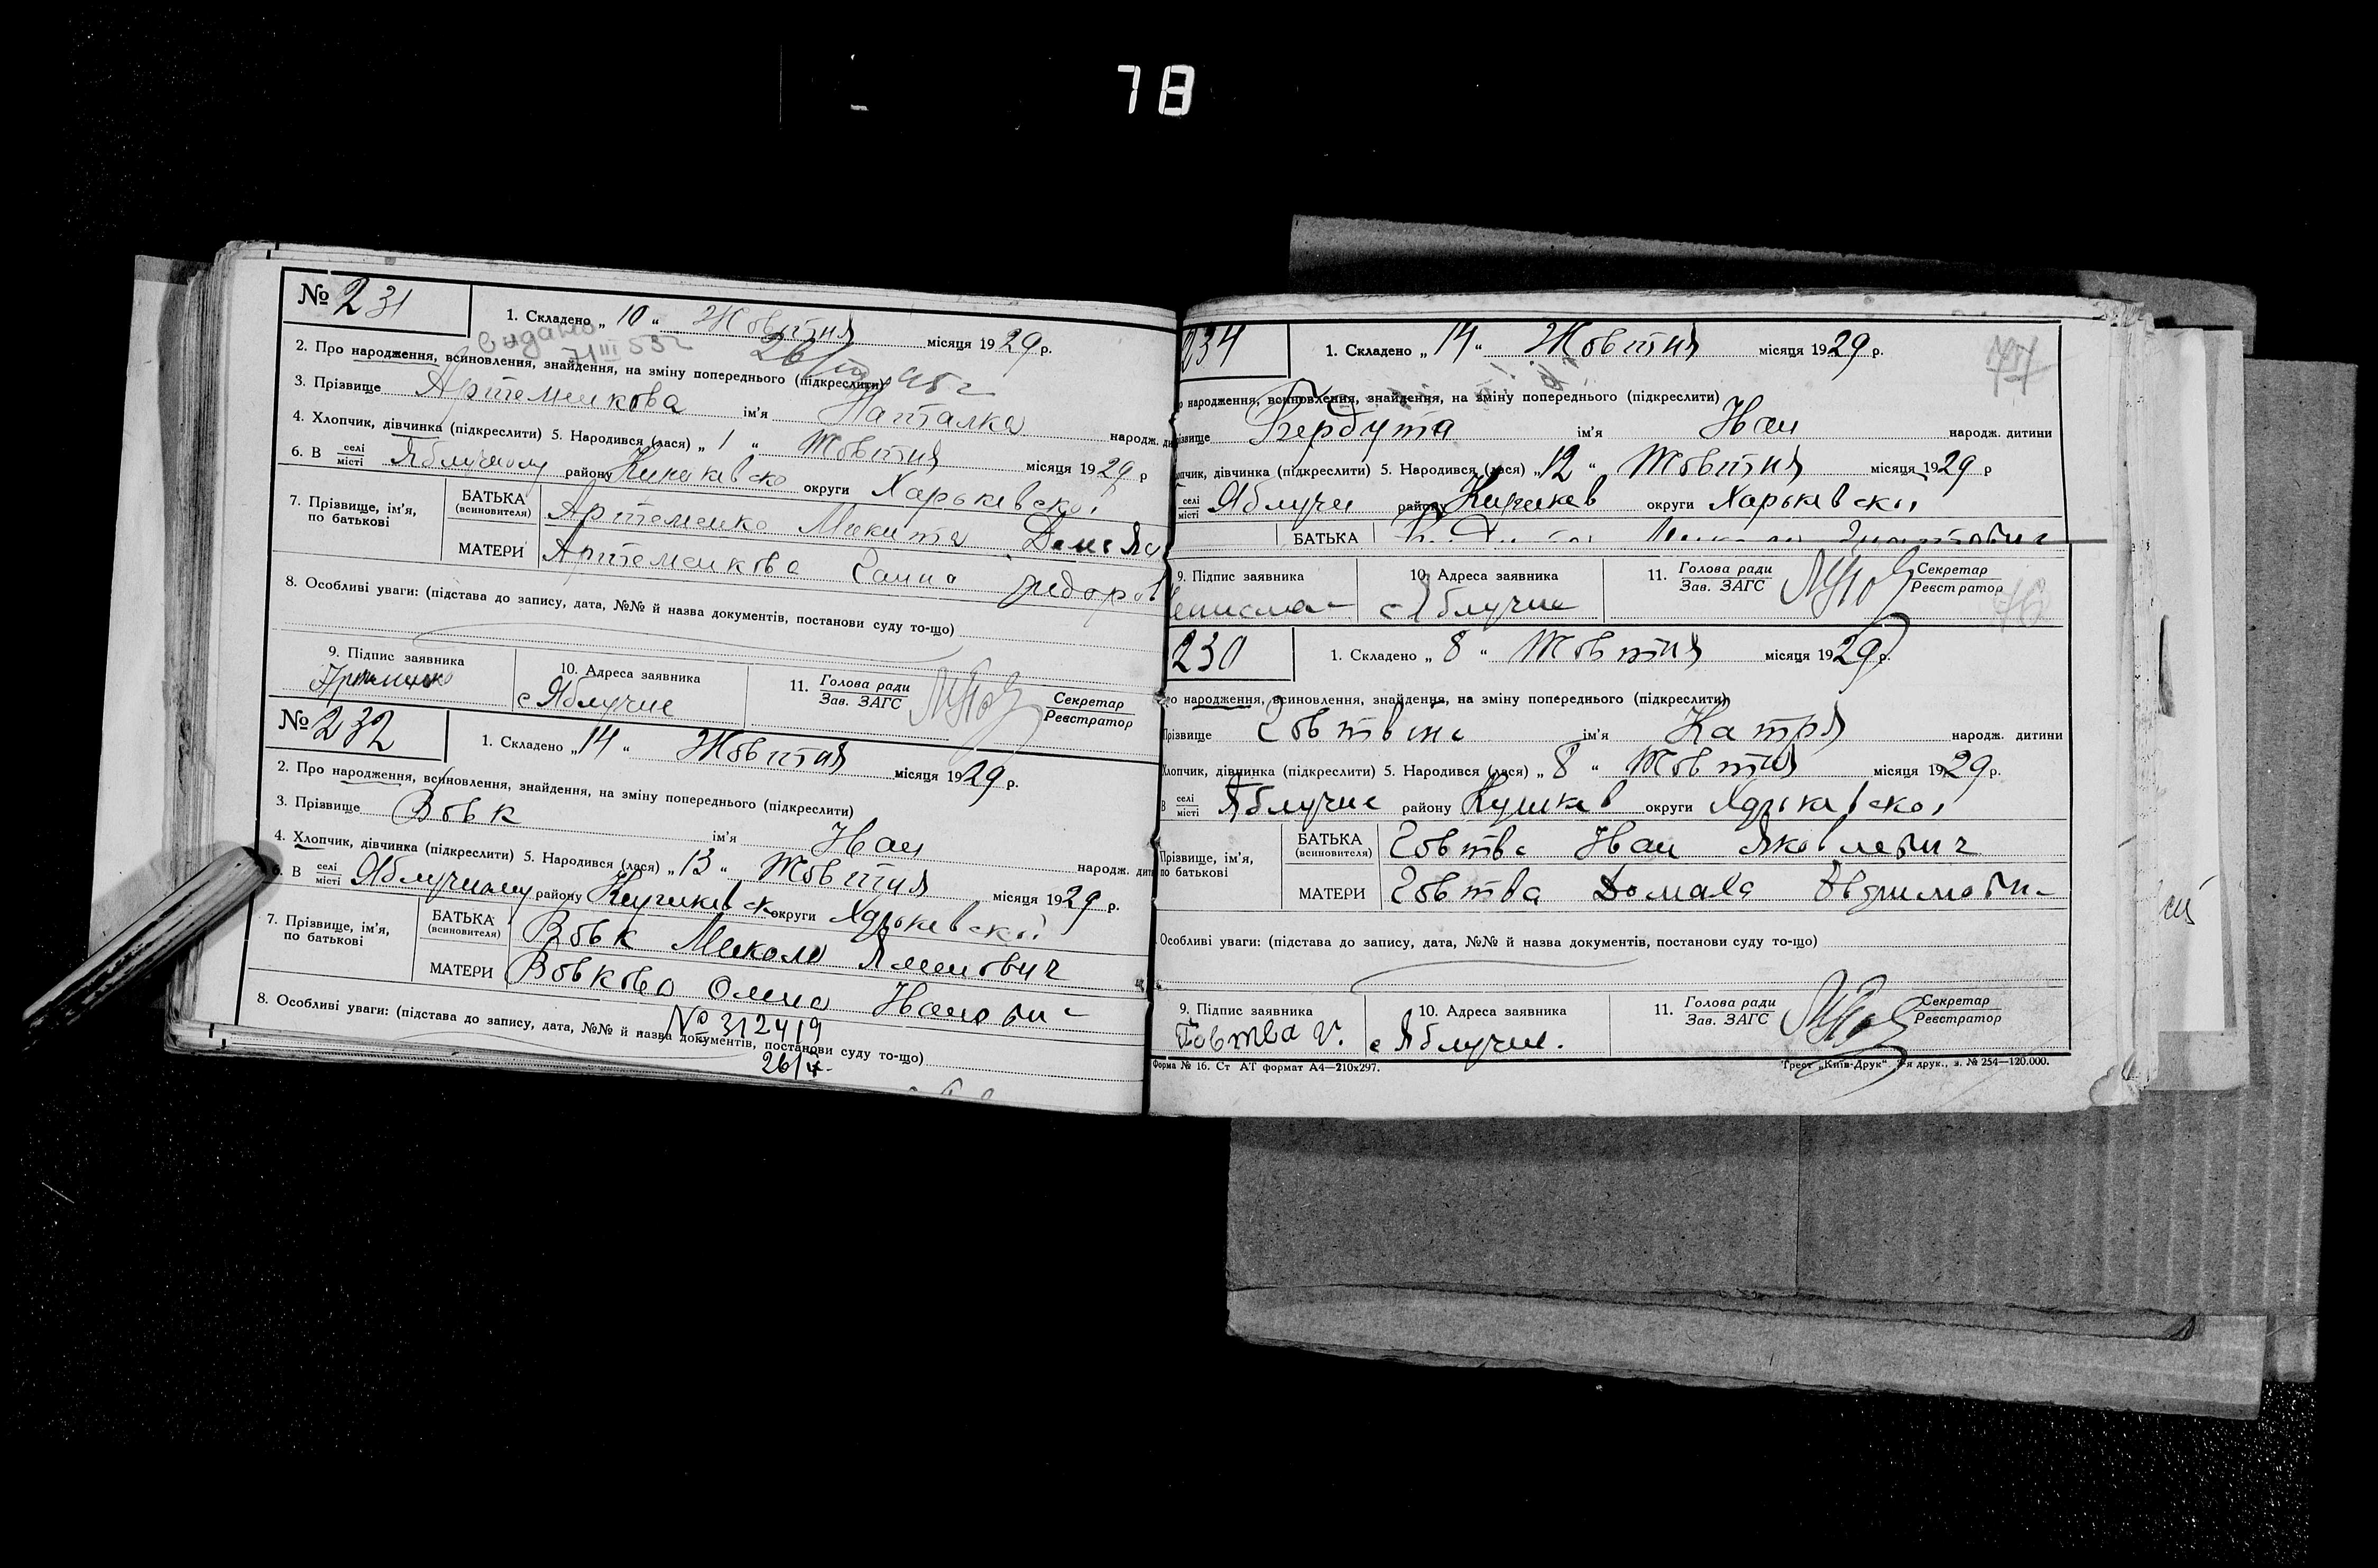 78
№ 231
1. Складено „ 10 “ Жовтня місяця 1929 р.
Видано
26/IV 45 г
2. Про народження, всиновлення, знайдення, на зміну попереднього (підкреслити)
3. Прізвище Артеменкова ім'я Наталка народж. ди
4. Хлопчик, дівчинка (підкреслити) 5. Народився (лася) „ 1 “ Жовтня місяця 1929 р
6. В селі/місті Яблучному району округи Харьківської
7. Прізвище, ім'я, по батькові
БАТЬКА (всиновителя) Артеменко Микита
МАТЕРИ Артеменкова Ганна Федоров
8. Особливі уваги: (підстава до запису, дата, №№ й назва документів, постанови суду то-що)
9. Підпис заявника
10. Адреса заявника с Яблучне
11. Голова ради/Зав. ЗАГС Секретар/Реєстратор
№ 232
1. Складено „ 14 “ Жовтня місяця 1929 р.
2. Про народження, всиновлення, знайдення, на зміну попереднього (підкреслити)
3. Прізвище Вовк ім'я Иван народж. дит
4. Хлопчик, дівчинка (підкреслити) 5. Народився (лася) „ 13 “ Жовтня місяця 1929 р.
6. В селі/місті Яблучному району округи Харьківської
7. Прізвище, ім'я, по батькові
БАТЬКА (всиновителя) Вовк Микола
МАТЕРИ Вовкова Олена
8. Особливі уваги: (підстава до запису, дата, №№ й назва документів, постанови суду то-що)
№ 312419
234
77
1. Складено „ 14 “ Жовтня місяця 1929 р.
о народження, всиновлення, знайдення, на зміну попереднього (підкреслити)
різвище Пердута ім'я Иван народж. дитини
опчик, дівчинка (підкреслити) 5. Народився (лася) „ 12 “ Жовтня місяця 1929 р
селі/місті Яблучн району округи Харьківської
БАТЬКА
9. Підпис заявника
10. Адреса заявника с Яблучне
11. Голова ради/Зав. ЗАГС Секретар/Реєстратор
230
1. Складено „ 8 “ Жовтня місяця 1929 р.
о народження, всиновлення, знайдення, на зміну попереднього (підкреслити)
Прізвище Говтвина ім'я Катря народж. дитини
Хлопчик, дівчинка (підкреслити) 5. Народився (лася) „ 8 “ Жовтня місяця 1929 р.
В селі/місті Яблучне району округи Харьківської
Прізвище, ім'я, по батькові
БАТЬКА (всиновителя) Говтва Иван Яковлевич
МАТЕРИ Говтва Домаха
Особливі уваги: (підстава до запису, дата, №№ й назва документів, постанови суду то-що)
9. Підпис заявника Говтва И.
10. Адреса заявника с Яблучне.
11. Голова ради/Зав. ЗАГС Секретар/Реєстратор
Форма № 16. Ст АТ формат А4—210х297.
Трест „Київ-Друк“ я друк., з. № 254—120.000.